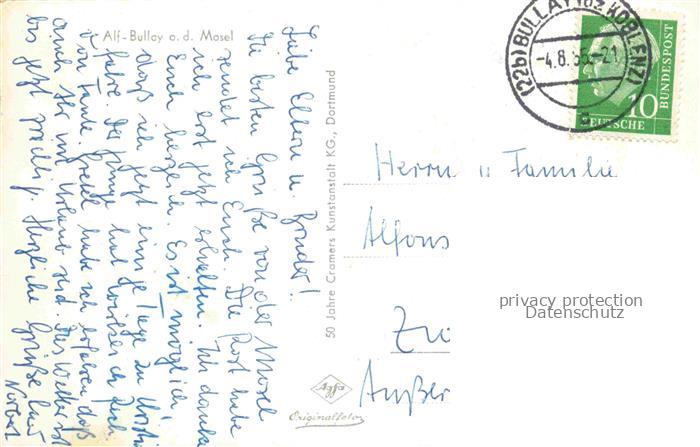 Alf-Bullay a. d. Mosel
Liebe Eltern u. Brüder!
Die besten Grüße von der Mosel
sendet ich Euch. Die Post habe
ich erst jetzt erhalten. Ich danke
Euch herzlich. Es ist möglich,
daß ich jetzt einige Tage zu
fahre. Der Junge hat
Von Tante Gretel habe ich erfahren daß
auch Ihr im Urlaub seid. Das Wetter ist
bis jetzt prächtig. Herzliche Grüße Euer
Norbert
50 Jahre Cramers Kunstanstalt KG., Dortmund
Agfa
Originalfoto
(22b) BULLAY (Bz KOBLENZ)
-4.8.
10
DEUTSCHE
BUNDESPOST
Herrn u Familie
Alfons
privacy protection
Datenschutz